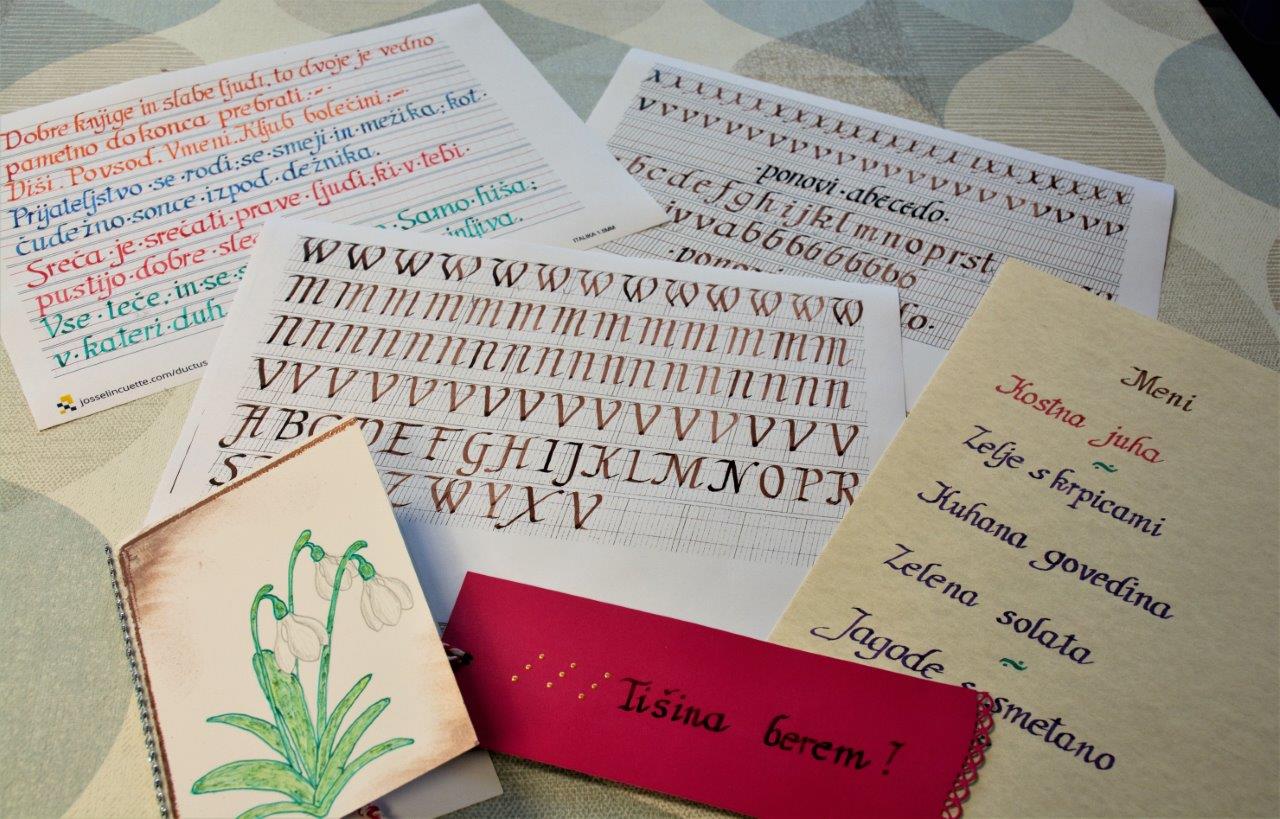 Dobre knjige in slabe ljudi, to dvoje je vedno
pametno do konca prebrati
Diši. Povsod. Vmeni. Kljub bolečini
Prijateljstvo·se·rodi;se·smeji·in·mežika;kot·
čudežno·sonce·izpod·dežnika.
Sreča·je·srečati·prave·ljudi;ki·v·tebi·
pustijo·dobre
Vse·teče;·in·se
Samo·hiša;
v·kateri·duh
josselincuette.com/ductus
ITALIKA 1.5MM
x x x x x x x x x x x x x x x x x x
v v v v v v v v v v v v v v v v v v
·ponovi·abecedo·
b c d e f g h i j k l m n o p r s t
v v a b b b b b b b b
W W W W W W W W W W W W W
m m m m m m m m m m m m m
n n n n n n n n n n n n n n n
V V V V V V V V V V V V V V
A B C D E F G H I J K L M N O P R
S Z W Y X V
Meni
Kostna juha
~
Zelje s krpicami
Kuhana govedina
Zelena solata
~
Jagode s smetano
Tišina berem!